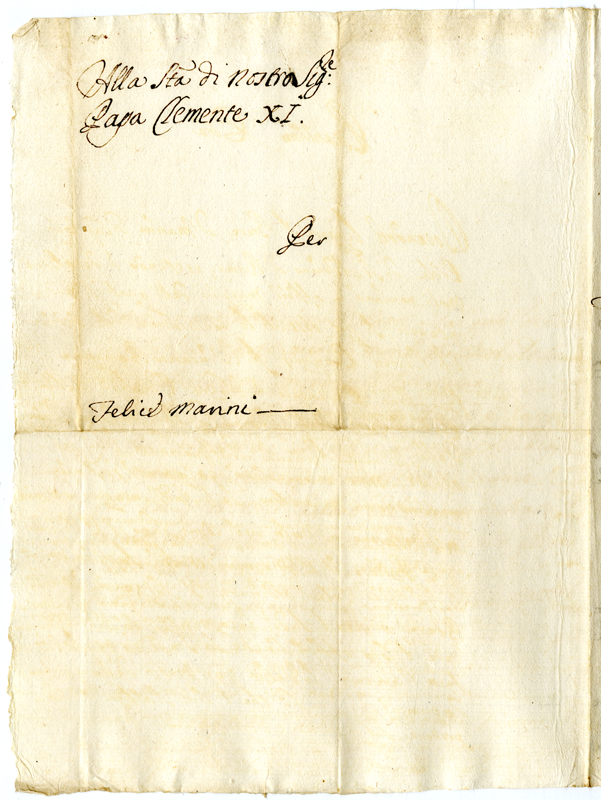 Alla Stà di Nostro Sig.re
Papa Clemente XI.
Per
Felice Marini